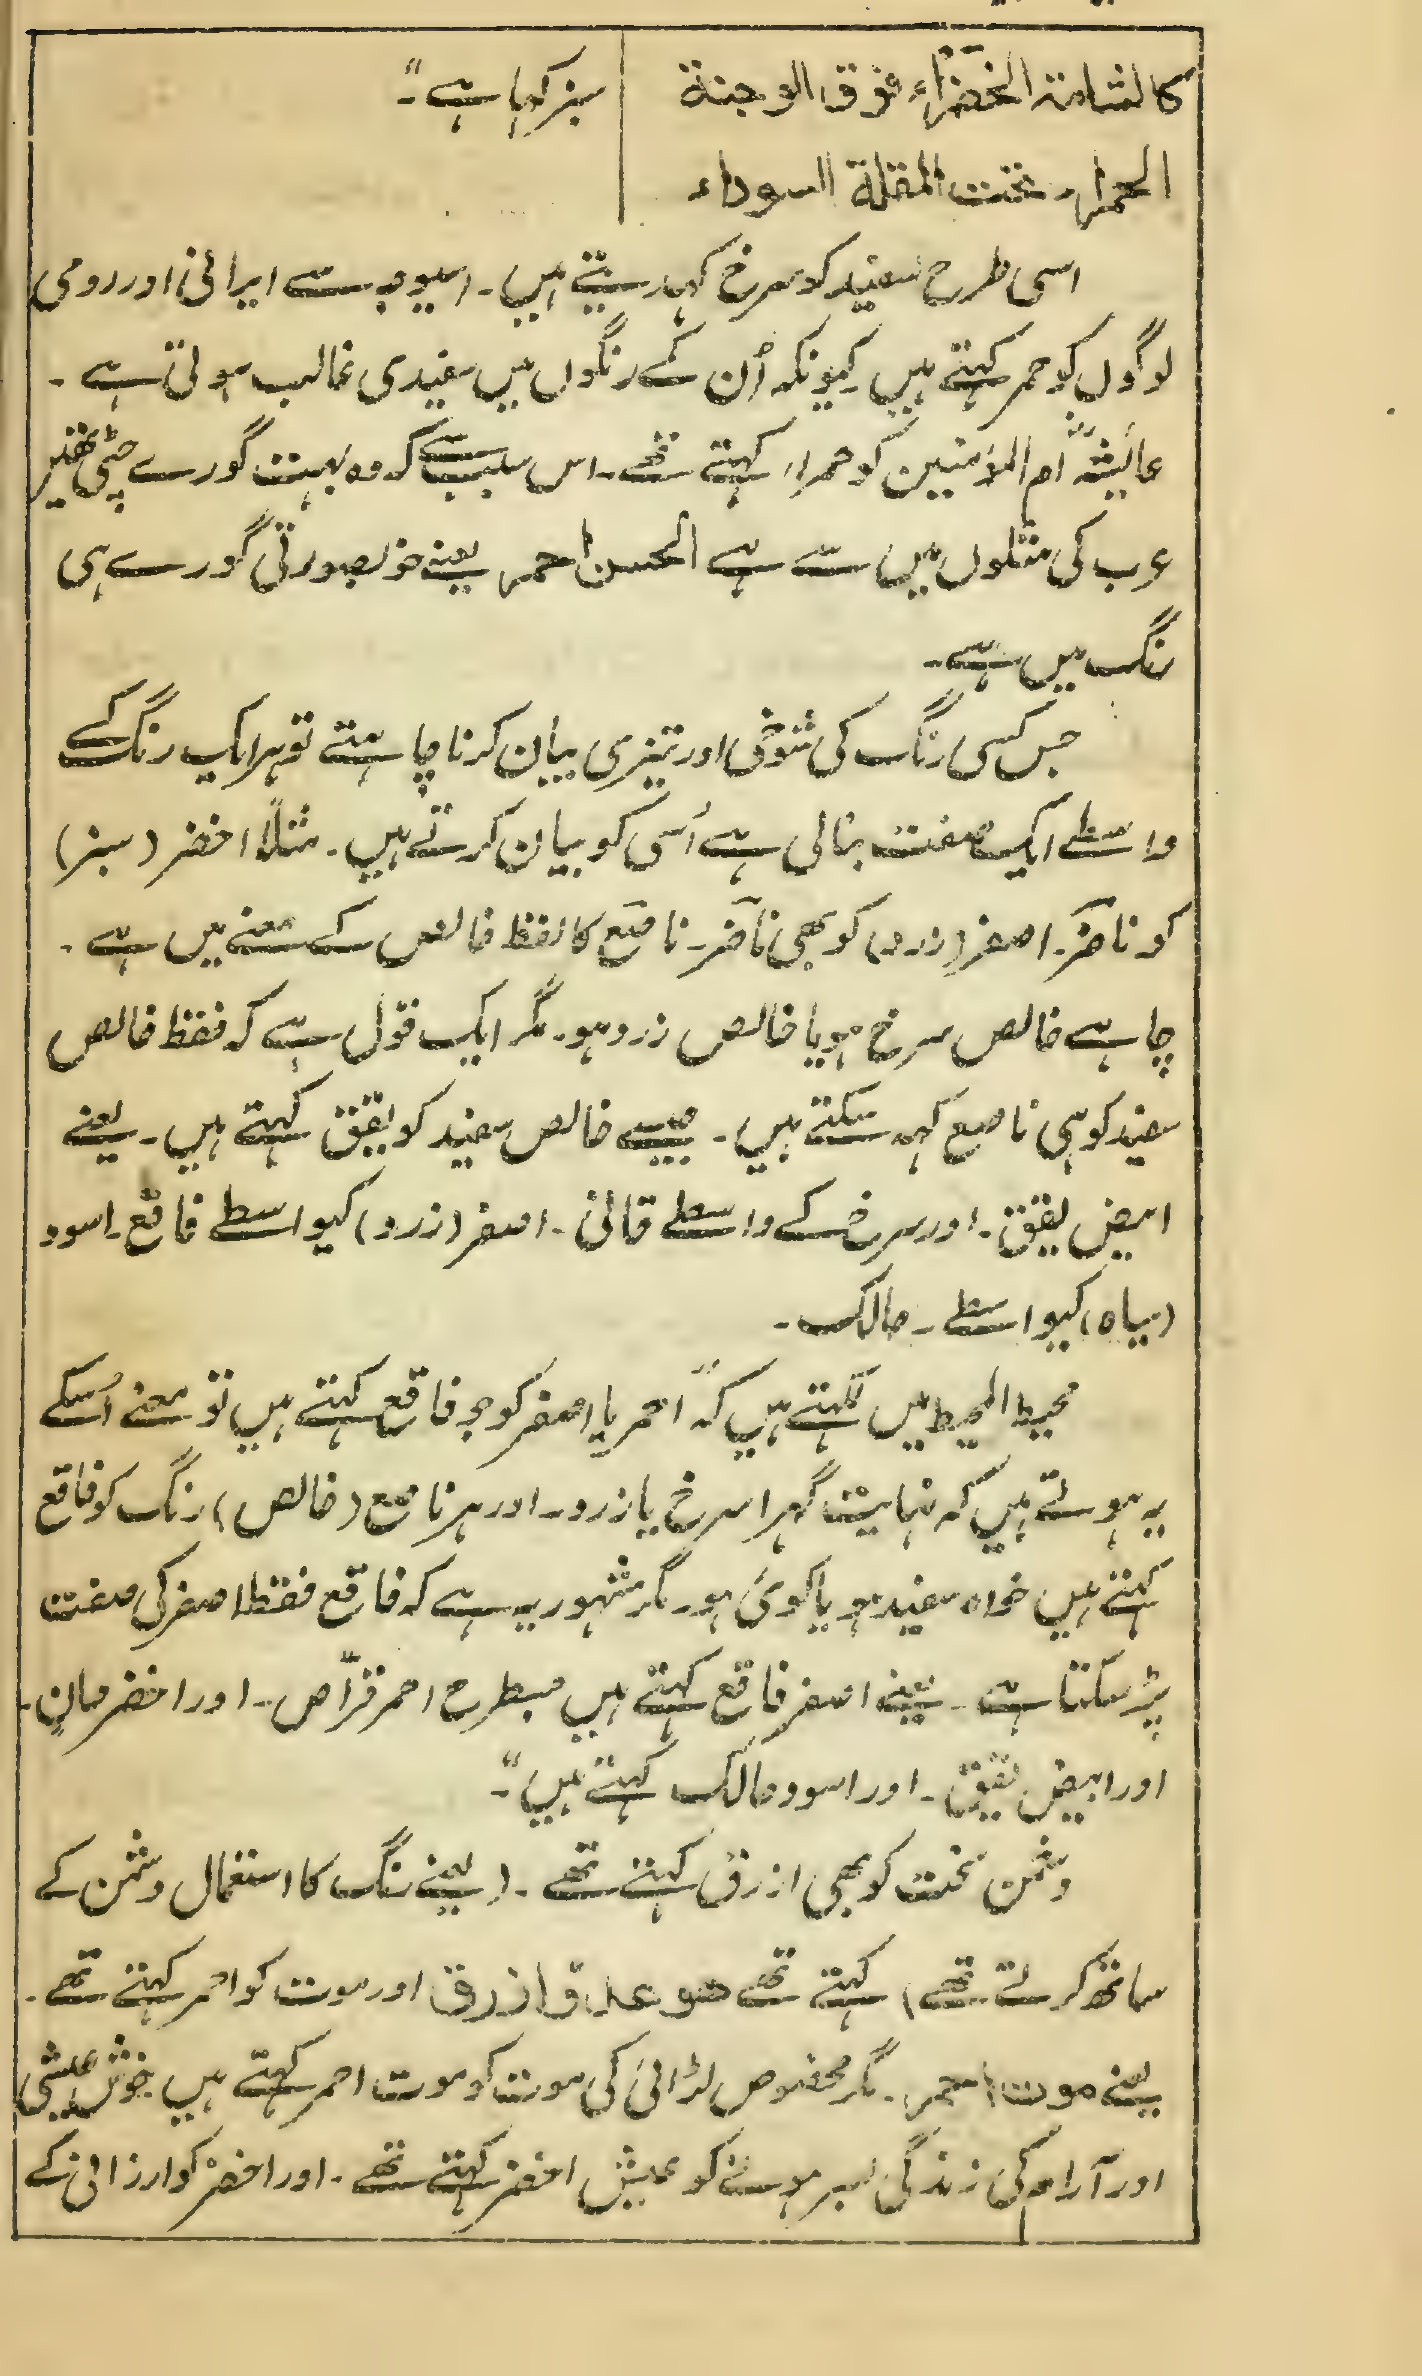 کالشامۃ الخضراء فوق الوجنۃ
الحمراء تحت المقلۃ السوداء
سبز کہا ہے"۔
اسی طرح سفید کو سرخ کہدیتے ہیں۔ اسیوجہ سے ایرانی اور رومی
لوگوں کو حمر کہتے ہیں کیونکہ اُن کے رنگوں میں سفیدی غالب ہوتی ہے۔
عائشہؓ ام المؤمنین کو حمراء کہتے تھے۔ اس سبب سے کہ وہ بہت گورے چٹی تھیں
عرب کی مثلوں میں سے ہے الحسن احمر یعنے خوبصورتی گورے ہی
رنگ میں ہے۔
جس کسی رنگ کی شوخی اور تیزی بیان کرنا چاہتے تو ہر ایک رنگ کے
واسطے ایک صفت بنالی ہے اُسی کو بیان کرتے ہیں۔ مثلاً اخضر (سبز)
کو ناضر۔ اصفر (زرد) کو بھی ناضر۔ ناصع کا لفظ خالص کے معنے میں ہے۔
چاہے خالص سرخ ہو یا خالص زرد ہو۔ مگر ایک قول ہے کہ فقط خالص
سفید کو ہی ناصع کہہ سکتے ہیں۔ جیسے خالص سفید کو یقق کہتے ہیں۔ یعنے
ابیض یقق۔ اور سرخ کے واسطے قانی۔ اصفر (زرد) کیواسطے فاقع۔ اسود
(سیاہ) کیواسطے۔ حالک۔
محیط المحیط میں لکھتے ہیں کہ "احمر یا اصفر کو جو فاقع کہتے ہیں تو معنے اُسکے
یہ ہوتے ہیں کہ نہایت گہرا سرخ یا زرد۔ اور ہر ناصع (خالص) رنگ کو فاقع
کہتے ہیں خواہ سفید ہو یا کوئی ہو۔ مگر مشہور یہ ہے کہ فاقع فقط اصفر کی صفت
پڑ سکتا ہے۔ یعنے اصفر فاقع کہتے ہیں جسطرح احمر قرّاص۔ اور اخضر حانٍ۔
اور ابیض یقق۔ اور اسود حالک کہتے ہیں"۔
دشمن سخت کو بھی ازرق کہتے تھے۔ (یعنے رنگ کا استعمال دشمن کے
ساتھ کرتے تھے) کہتے تھے ھو عدوّ ازرق اور موت کو احمر کہتے تھے۔
یعنے موت احمر۔ مگر مخصوص لڑائی کی موت کو موت احمر کہتے ہیں خوش عیشی
اور آرام کی زندگی بسر ہونے کو عیش اخضر کہتے تھے۔ اور اخضر کو ارزانی کے